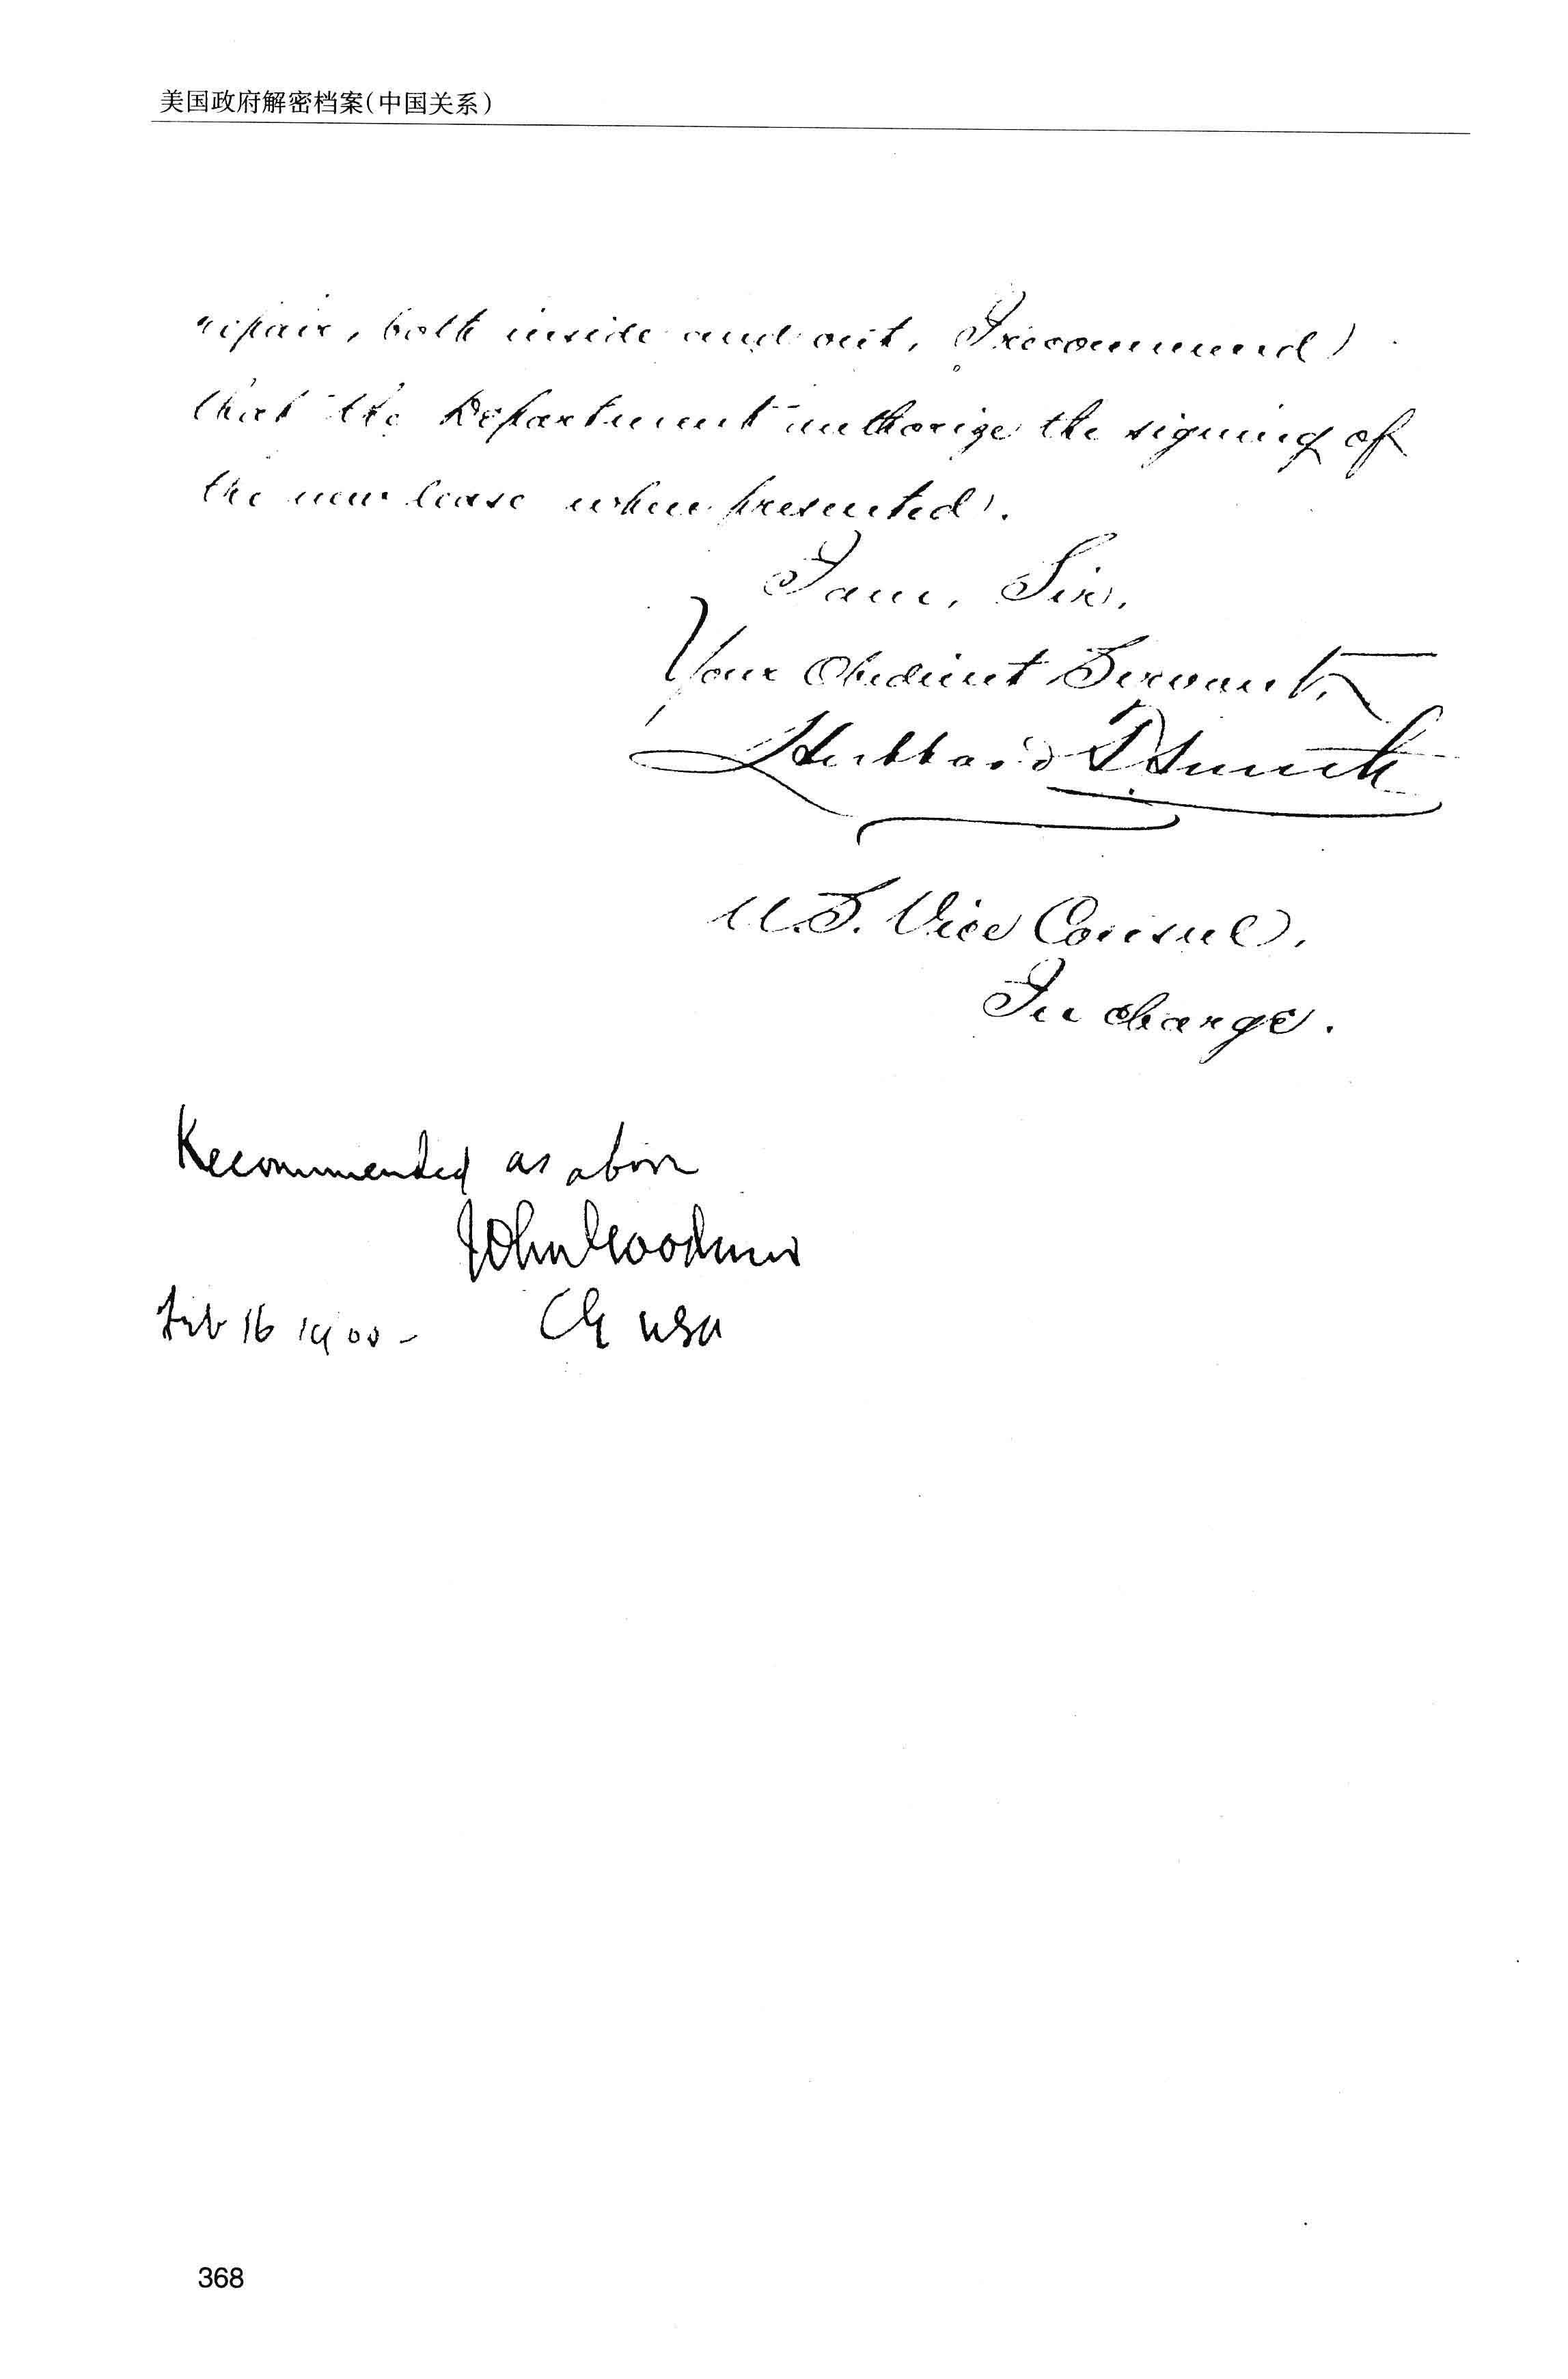 美国政府解密档案(中国关系)
repair, both inside and out, I recommend
that the Department authorize the signing of
the new lease when presented.
I am, Sir,
Your Obedient Servant,
Hubbard T. Smith
U.S. Vice Consul,
In charge.
Recommended as above
John Goodnow
Feb 16 1900 - CG USA
368